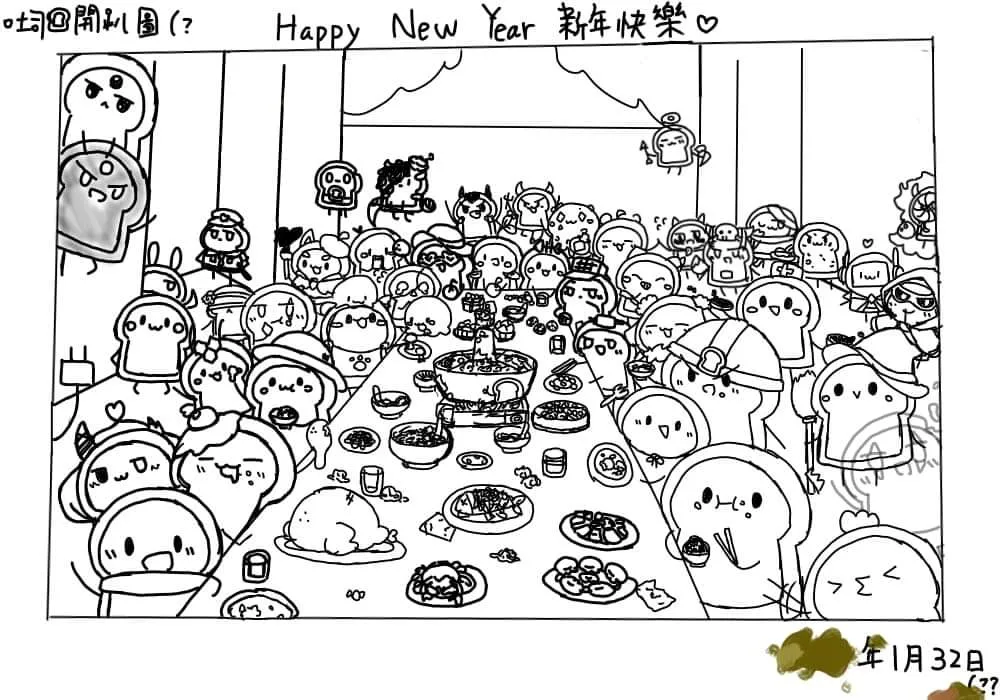 吐司@開趴圖(?
Happy New Year 新年快樂♡
年1月32日
(??